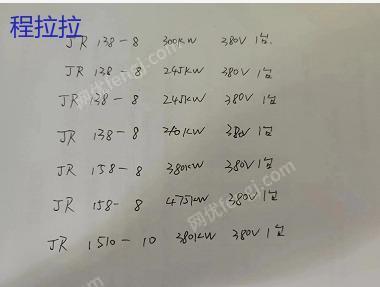 程拉拉
JR 138-8 300KW 380V 1台
JR 138-8 245KW 380V 1台
JR 138-8 245KW 380V 1台
JR 138-8 210KW 380V 1台
JR 158-8 380KW 380V 1台
JR 158-8 475KW 380V 1台
JR 1510-10 380KW 380V 1台
网优fengj.com